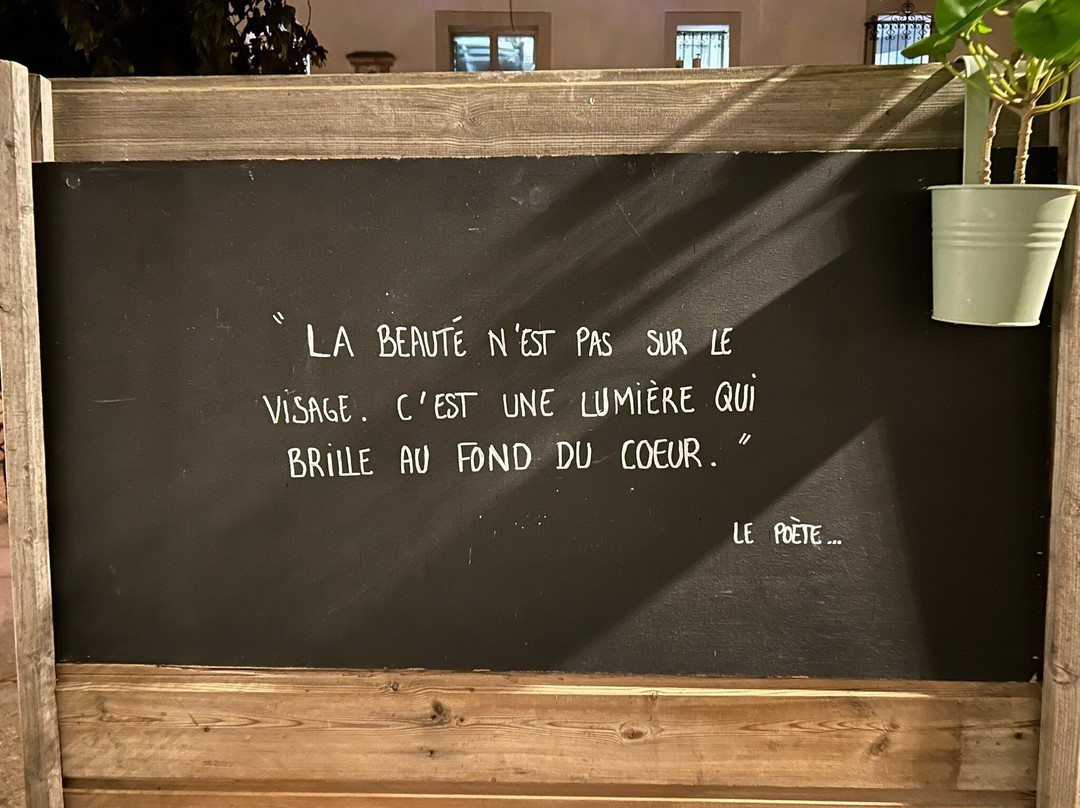 “ LA BEAUTÉ N'EST PAS SUR LE
VISAGE. C'EST UNE LUMIÈRE QUI
BRILLE AU FOND DU COEUR. ”
LE POÈTE...